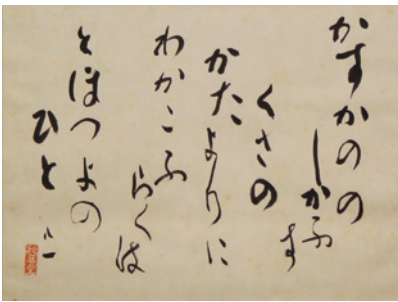 かすかのの
しかふす
くさの
かたよりに
わかこふ
らくは
とほつよの
ひと
八一